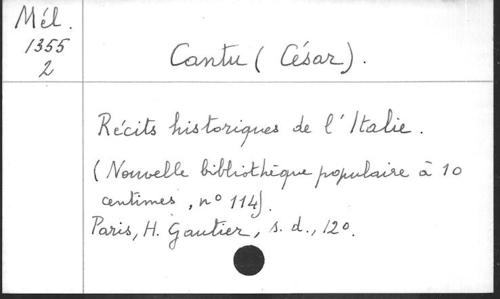 Mél.
1355
2
Cantu (César).
Récits historiques de l'Italie.
(Nouvelle bibliothèque populaire à 10
centimes, nº 114).
Paris, H. Gautier, s. d., 12º.